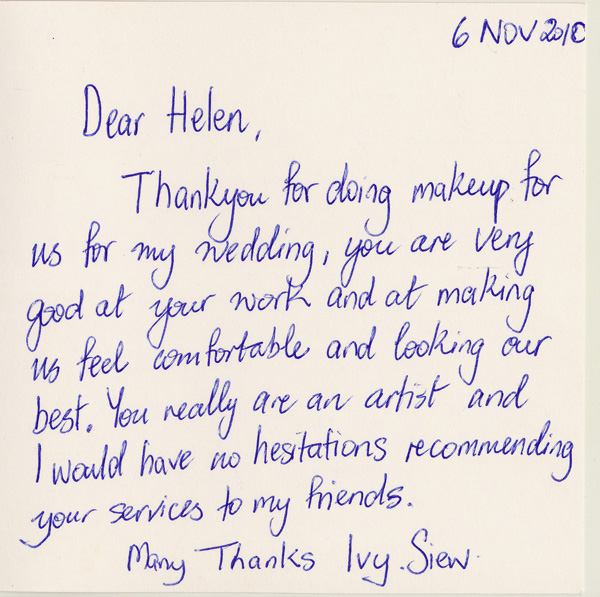 6 NOV 2010
Dear Helen,
Thankyou for doing makeup for
us for my wedding, you are very
good at your work and at making
us feel comfortable and looking our
best. You really are an artist and
I would have no hesitations recommending
your services to my friends.
Many Thanks Ivy. Siew.